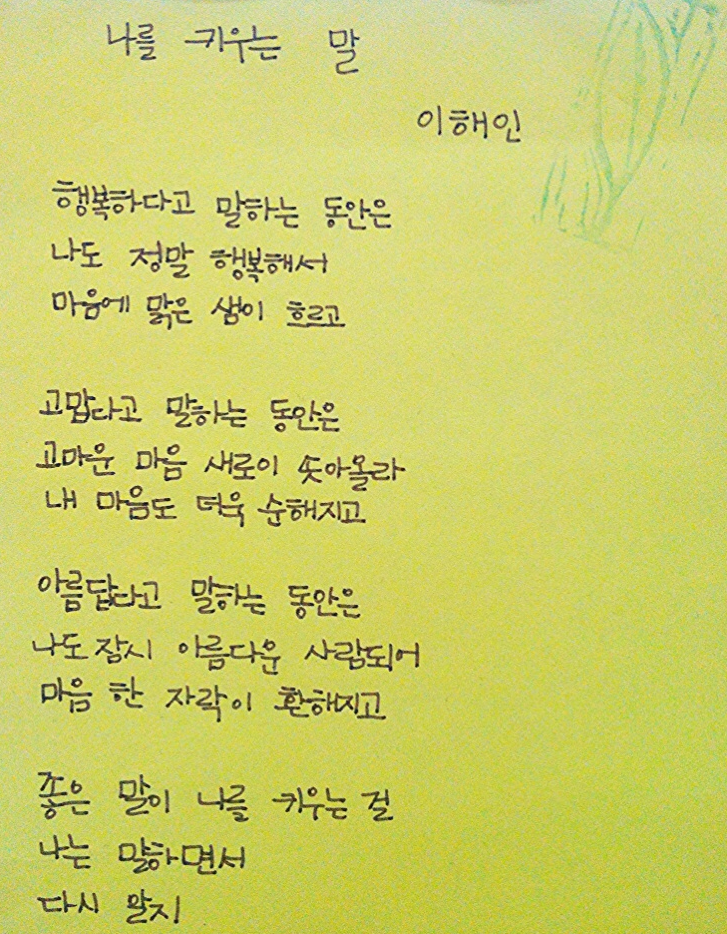 나를 키우는 말
이해인
행복하다고 말하는 동안은
나도 정말 행복해서
마음에 맑은 샘이 흐르고
고맙다고 말하는 동안은
고마운 마음 새로이 솟아올라
내 마음도 더욱 순해지고
아름답다고 말하는 동안은
나도 잠시 아름다운 사람되어
마음 한 자락이 환해지고
좋은 말이 나를 키우는 걸
나는 말하면서
다시 알지